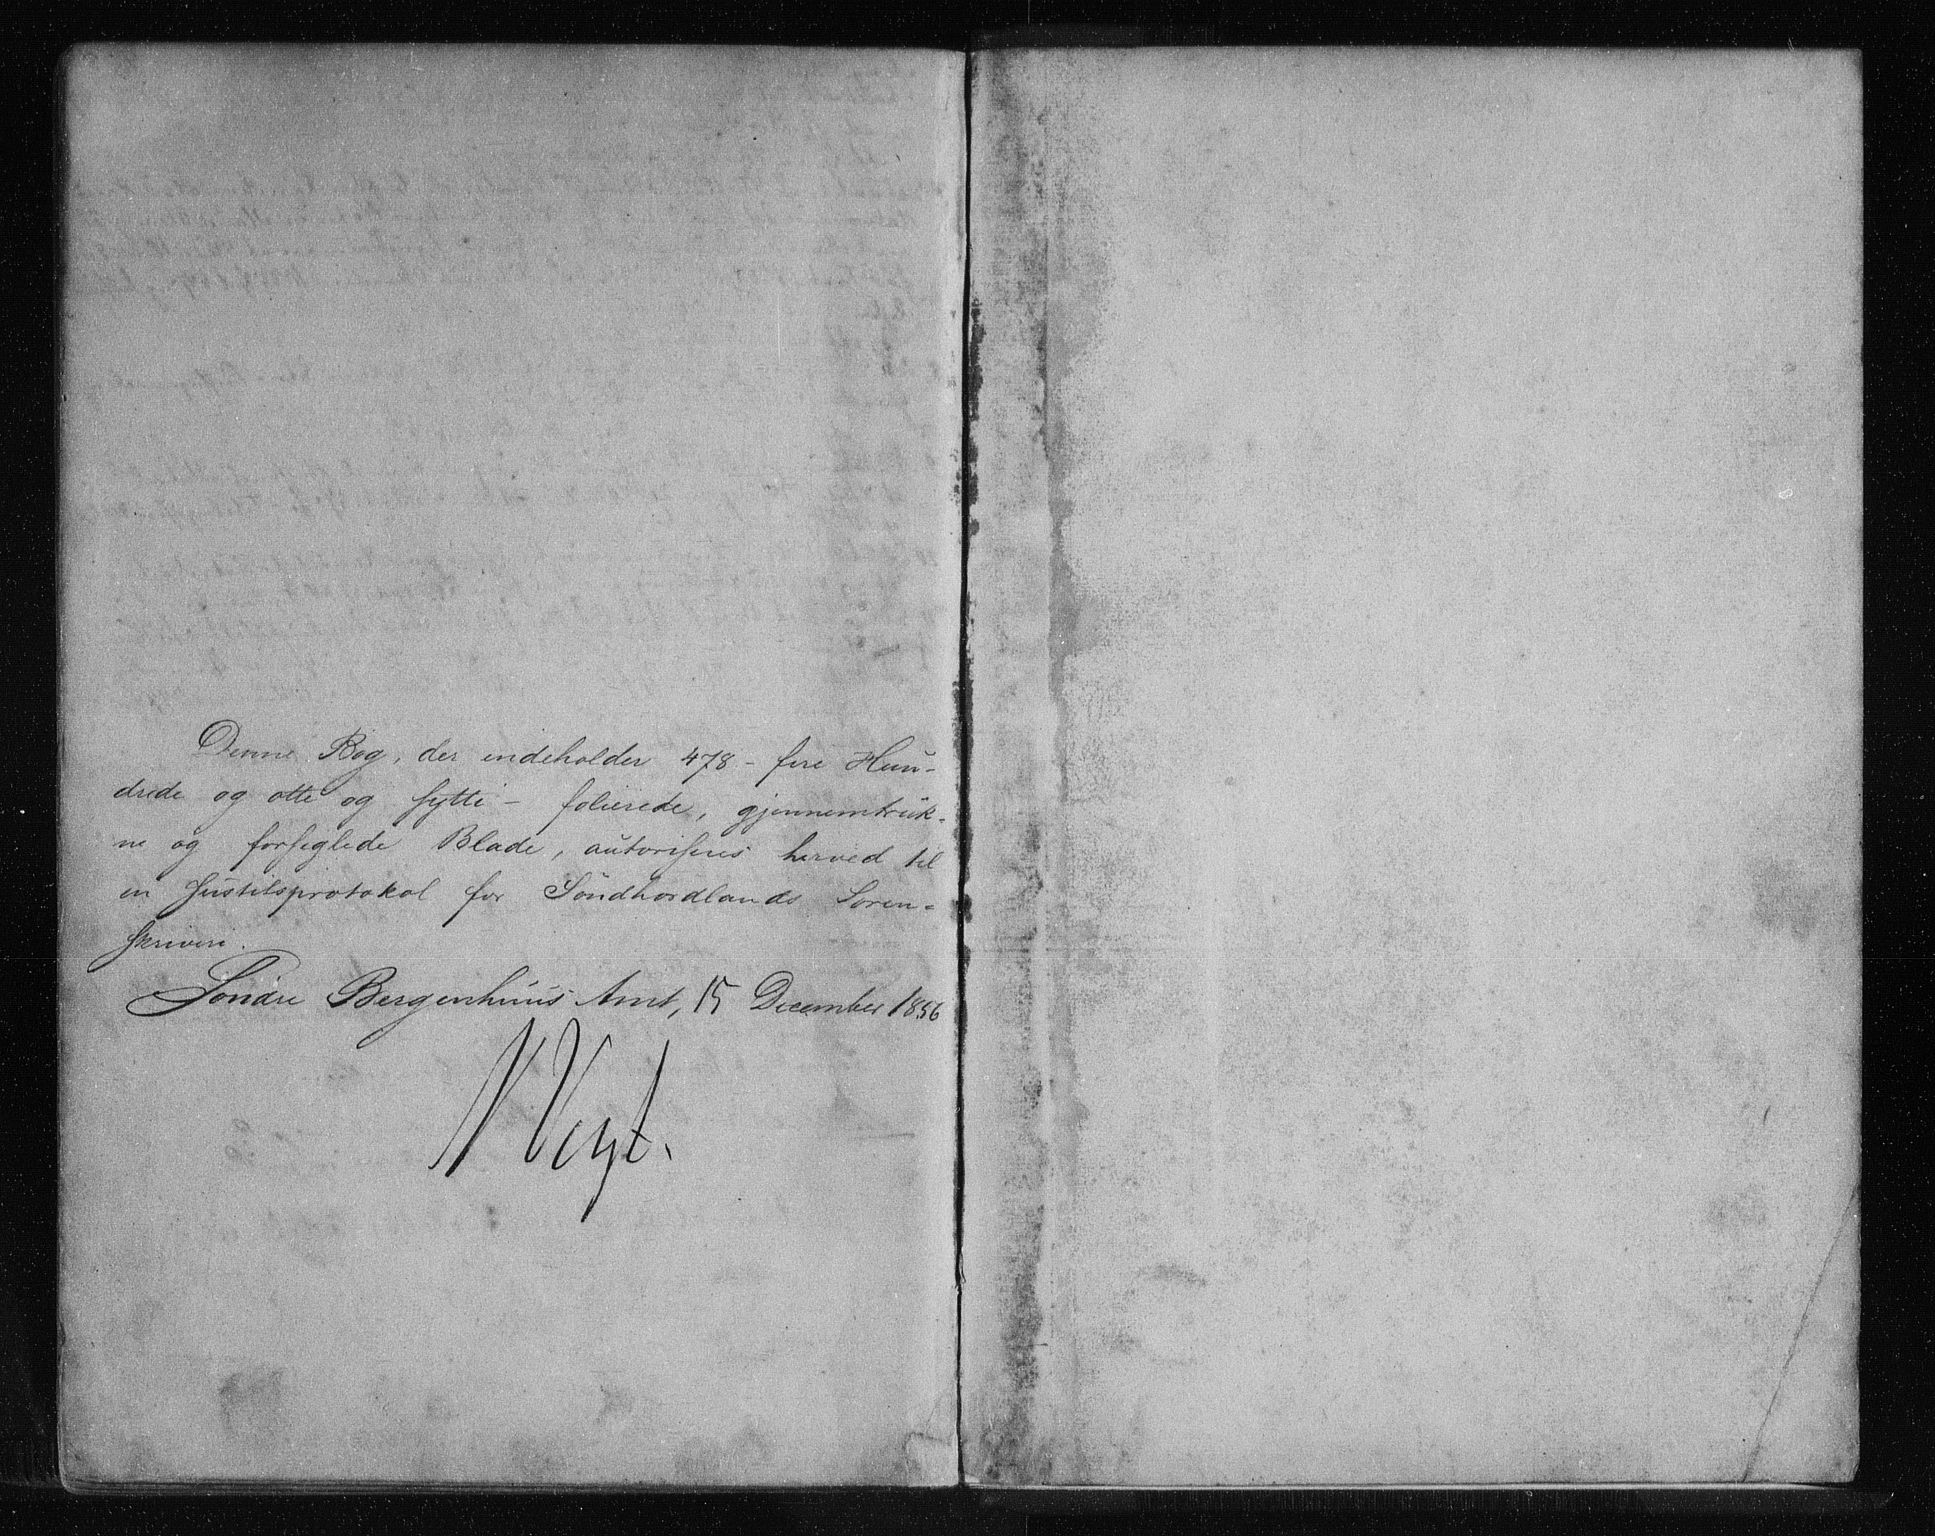 Denne Bog, der indeholder 478 - fire Hun-
drede og otte og sytti - folierede, gjennemtruk-
ne og forseglede Blade, autoriseres herved til
en Justitsprotokol for Søndhordlands Soren-
skriveri.
Søndre Bergenhuus Amt, 15 December 1856